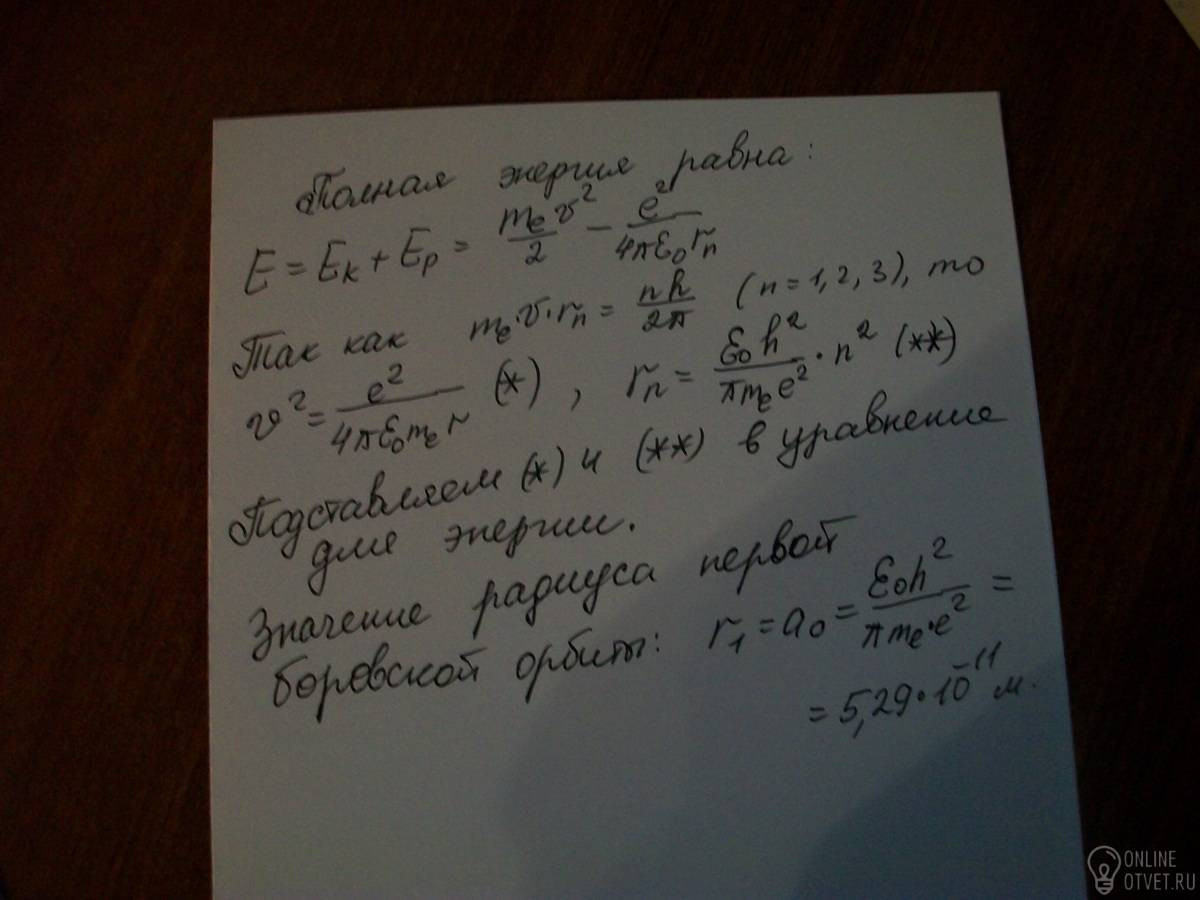 Полная энергия равна:
E = Eк + Eр = mₑv²/2 − e²/4πε₀rₙ
Так как mₑ·v·rₙ = nh/2π (n = 1, 2, 3), то
v² = e²/4πε₀mₑr (*), rₙ = ε₀h²/πmₑe² · n² (**)
Подставляем (*) и (**) в уравнение
для энергии.
Значение радиуса первой
боровской орбиты: r₁ = a₀ = ε₀h²/πmₑ·e² =
= 5,29·10⁻¹¹ м.
ONLINE
OTVET.RU